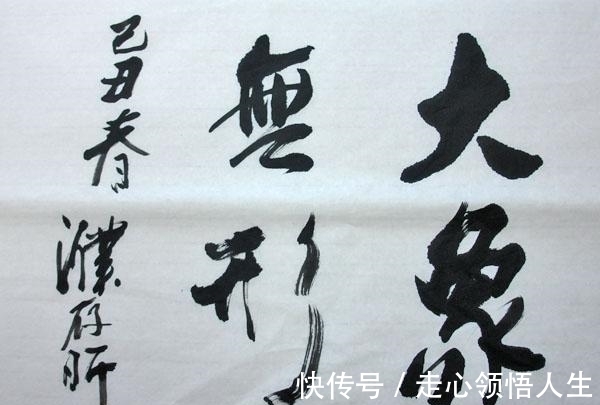 大象
無形
己丑春
濮存昕
快传号 / 走心领悟人生